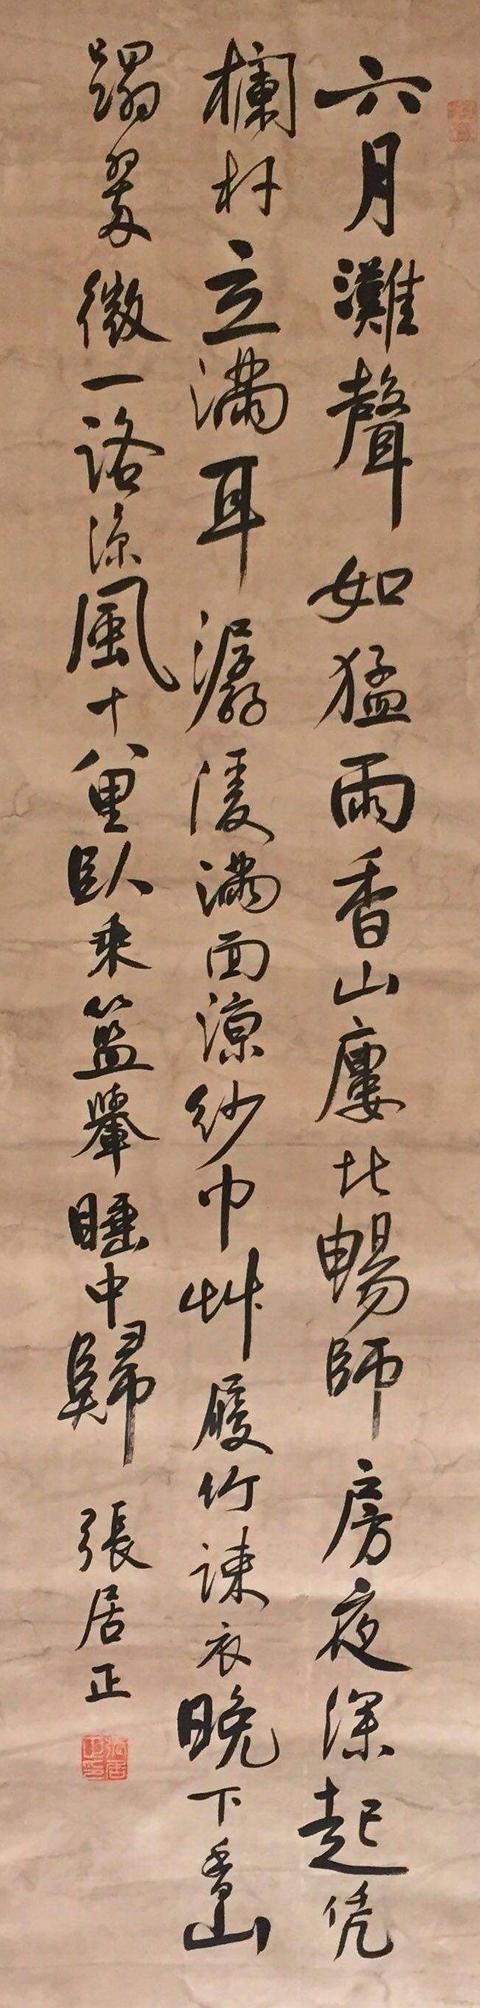 六月灘聲如猛雨香山廔北暢師房夜深起凭
欄杆立滿耳潺湲滿面涼紗巾艸履竹疎衣晚下香山
蹋翠微一路涼風十八里臥乘籃轝睡中歸 張居正